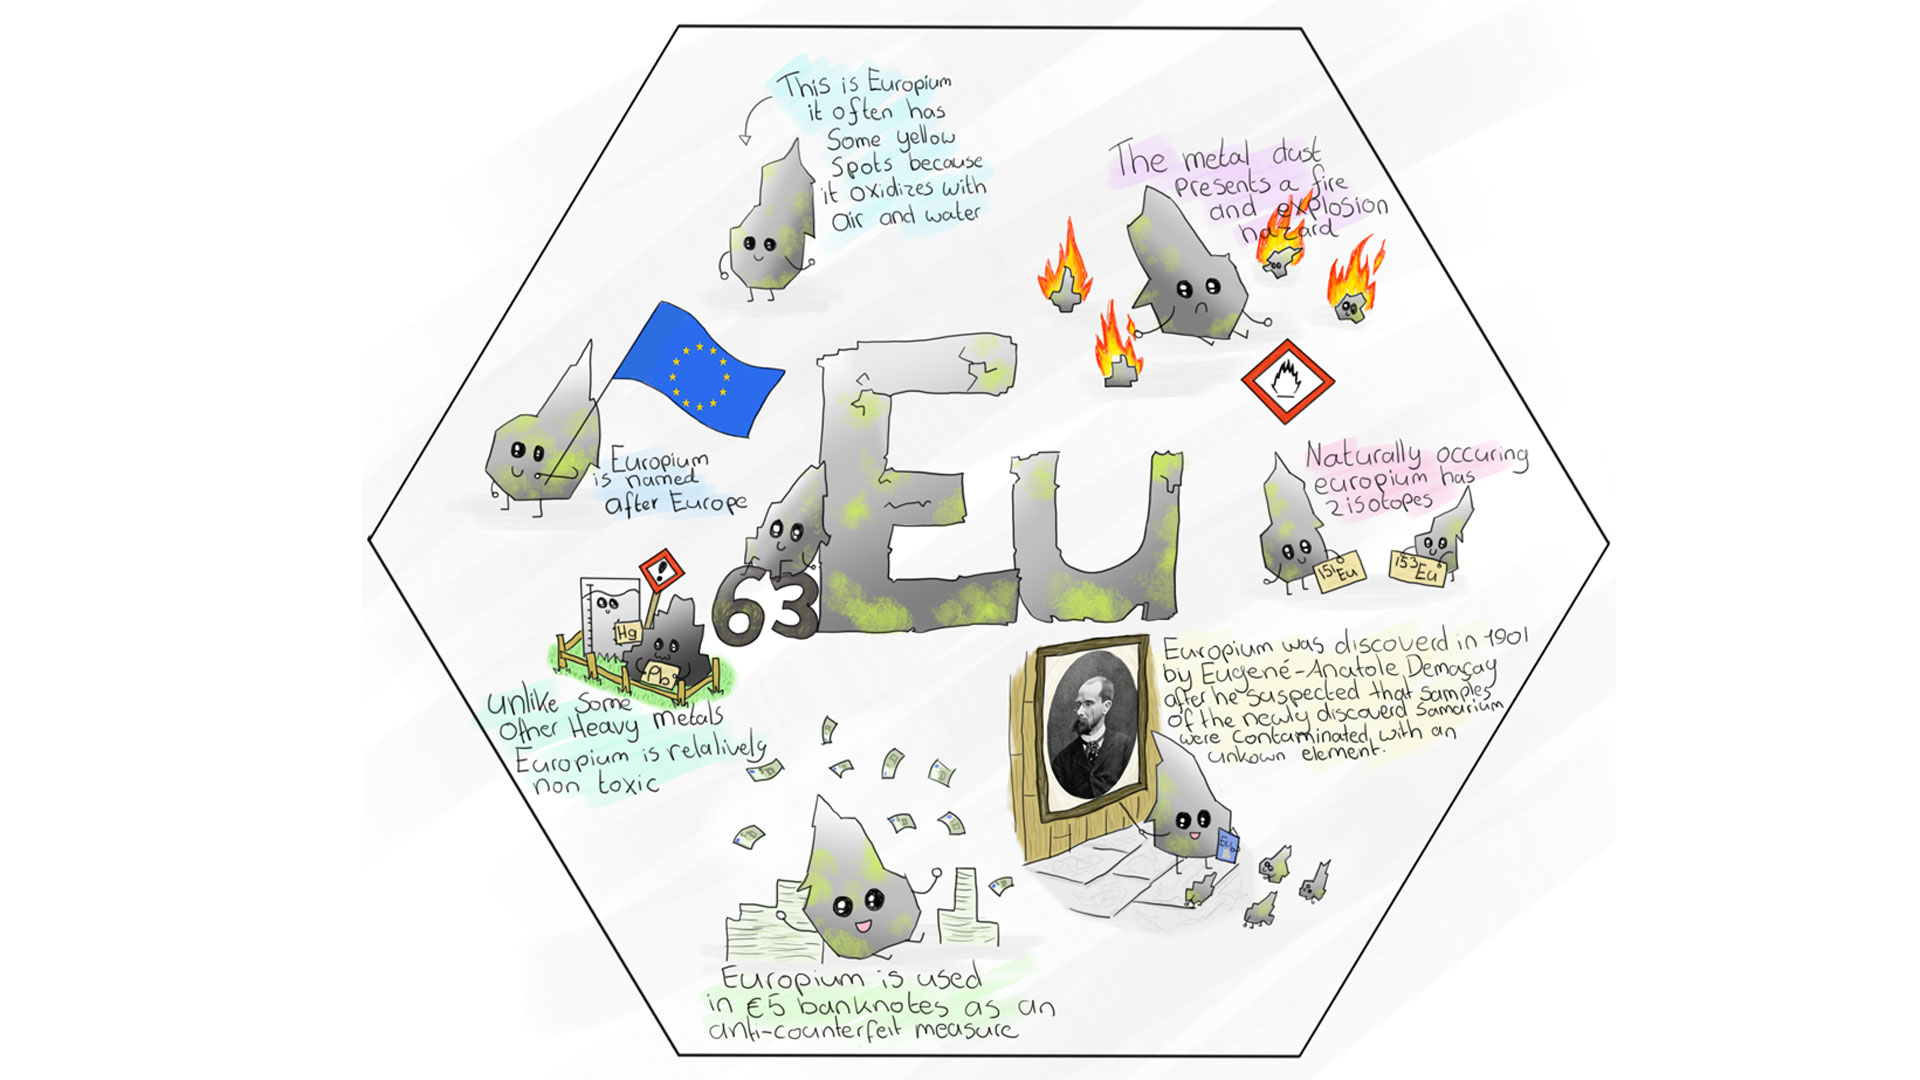 This is Europium
it often has
Some yellow
Spots because
it oxidizes with
air and water
The metal dust
presents a fire
and explosion
hazard
Europium
is named
after Europe
Eu
63
Naturally occuring
europium has
2 isotopes
151Eu
153Eu
!
Hg
Pb
unlike some
Other Heavy metals
Europium is relatively
non toxic
Europium was discoverd in 1901
by Eugené-Anatole Demaçay
after he suspected that samples
of the newly discoverd Samarium
were contaminated with an
unkown element.
Europium is used
in €5 banknotes as an
anti-counterfeit measure